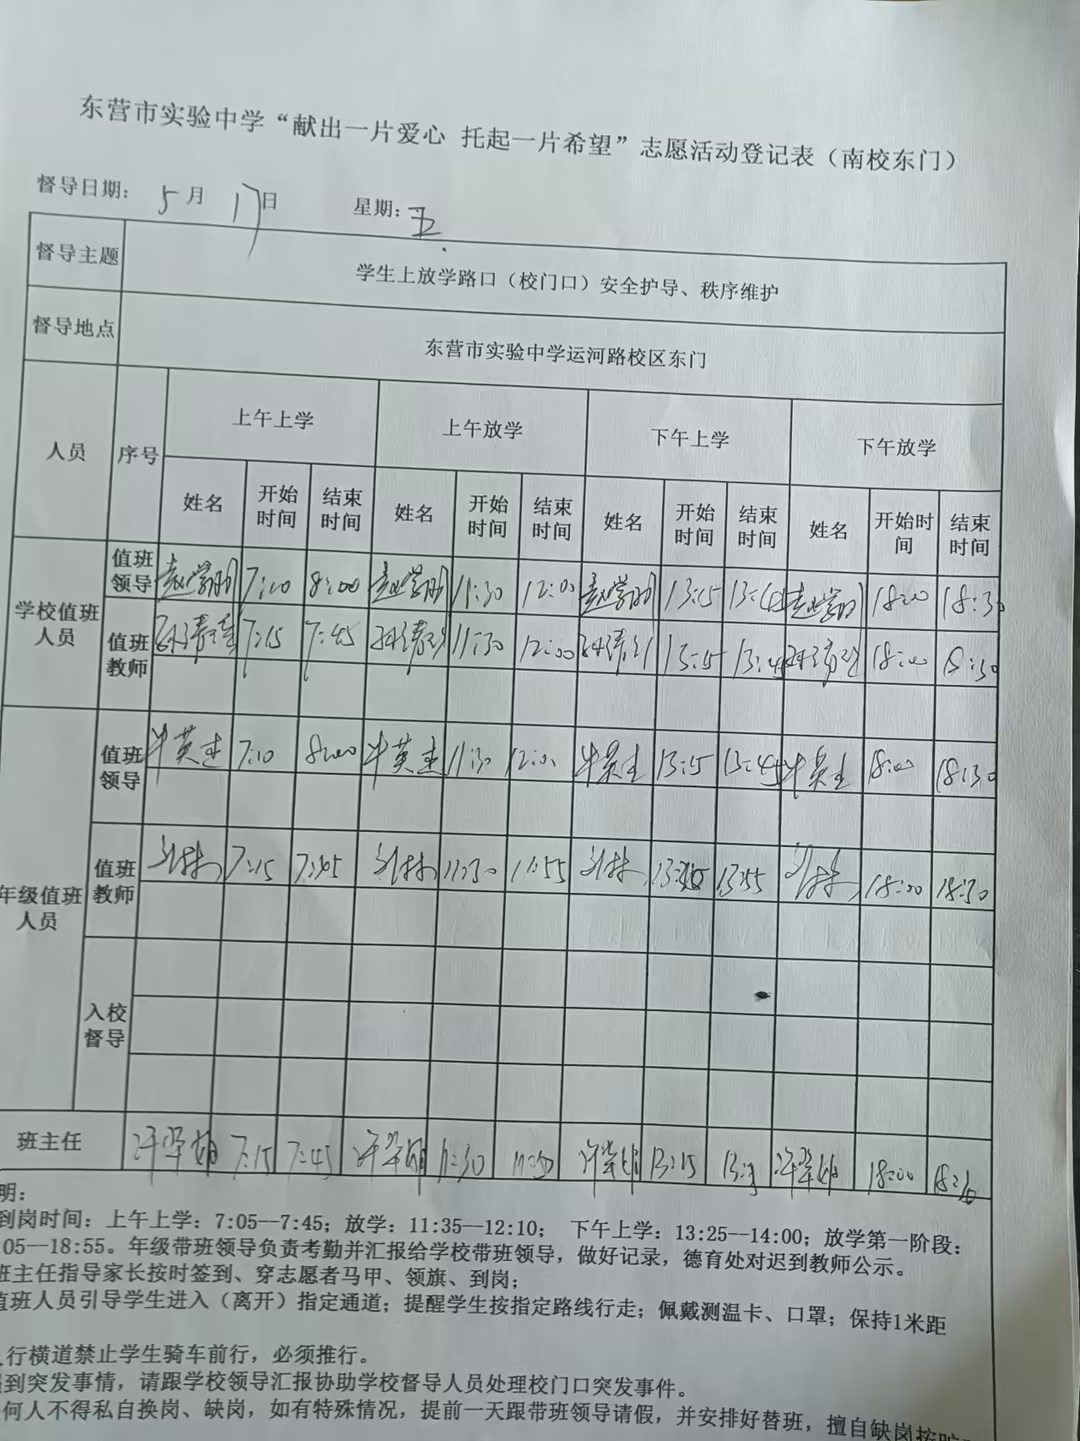 东营市实验中学“献出一片爱心 托起一片希望”志愿活动登记表（南校东门）
督导日期： 5 月 17 日 星期：五
督导主题 学生上放学路口（校门口）安全护导、秩序维护
督导地点 东营市实验中学运河路校区东门
人员 序号 上午上学 上午放学 下午上学 下午放学
姓名 开始时间 结束时间 姓名 开始时间 结束时间 姓名 开始时间 结束时间 姓名 开始时间 结束时间
学校值班人员
值班领导 7:10 8:00 11:30 12:00 13:15 13:4 18:00 18:30
值班教师 7:15 7:45 11:30 12:00 13:15 13:4 18:00 18:30
年级值班人员
值班领导 牛英杰 7:10 8:00 牛英杰 11:30 12:00 牛英杰 13:15 13:45 牛英杰 18:00 18:30
值班教师 刘林 7:15 7:45 刘林 11:30 11:55 刘林 13:55 刘林 18:00 18:30
入校督导
班主任 7:15 7:45 11:30 11:50 13:15 18:00
明：
到岗时间：上午上学：7:05--7:45；放学：11:35--12:10； 下午上学：13:25--14:00；放学第一阶段：
05--18:55。年级带班领导负责考勤并汇报给学校带班领导，做好记录，德育处对迟到教师公示。
班主任指导家长按时签到、穿志愿者马甲、领旗、到岗；
值班人员引导学生进入（离开）指定通道；提醒学生按指定路线行走；佩戴测温卡、口罩；保持1米距
行横道禁止学生骑车前行，必须推行。
到突发事情，请跟学校领导汇报协助学校督导人员处理校门口突发事件。
何人不得私自换岗、缺岗，如有特殊情况，提前一天跟带班领导请假，并安排好替班，擅自缺岗按